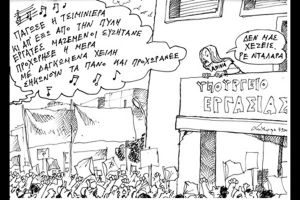 ΠΑΓΩΣΕ Η ΤΣΙΜΙΝΙΕΡΑ
ΚΙ ΑΠ' ΕΞΩ ΑΠΟ ΤΗΝ ΠΥΛΗ
ΕΡΓΑΤΕΣ ΜΑΖΕΜΕΝΟΙ ΣΥΖΗΤΑΝΕ
ΠΡΟΧΩΡΗΣΕ Η ΜΕΡΑ
ΜΕ ΔΑΓΚΩΜΕΝΑ ΧΕΙΛΗ
ΣΗΚΩΝΟΥΝ ΤΑ ΠΑΝΟ ΚΑΙ ΠΡΟΧΩΡΑΝΕ
ΔΕΝ ΜΑΣ
ΧΕΖΕΙΣ,
ΡΕ ΝΤΑΛΑΡΑ
ΥΠΟΥΡΓΕΙΟ
ΕΡΓΑΣΙΑΣ